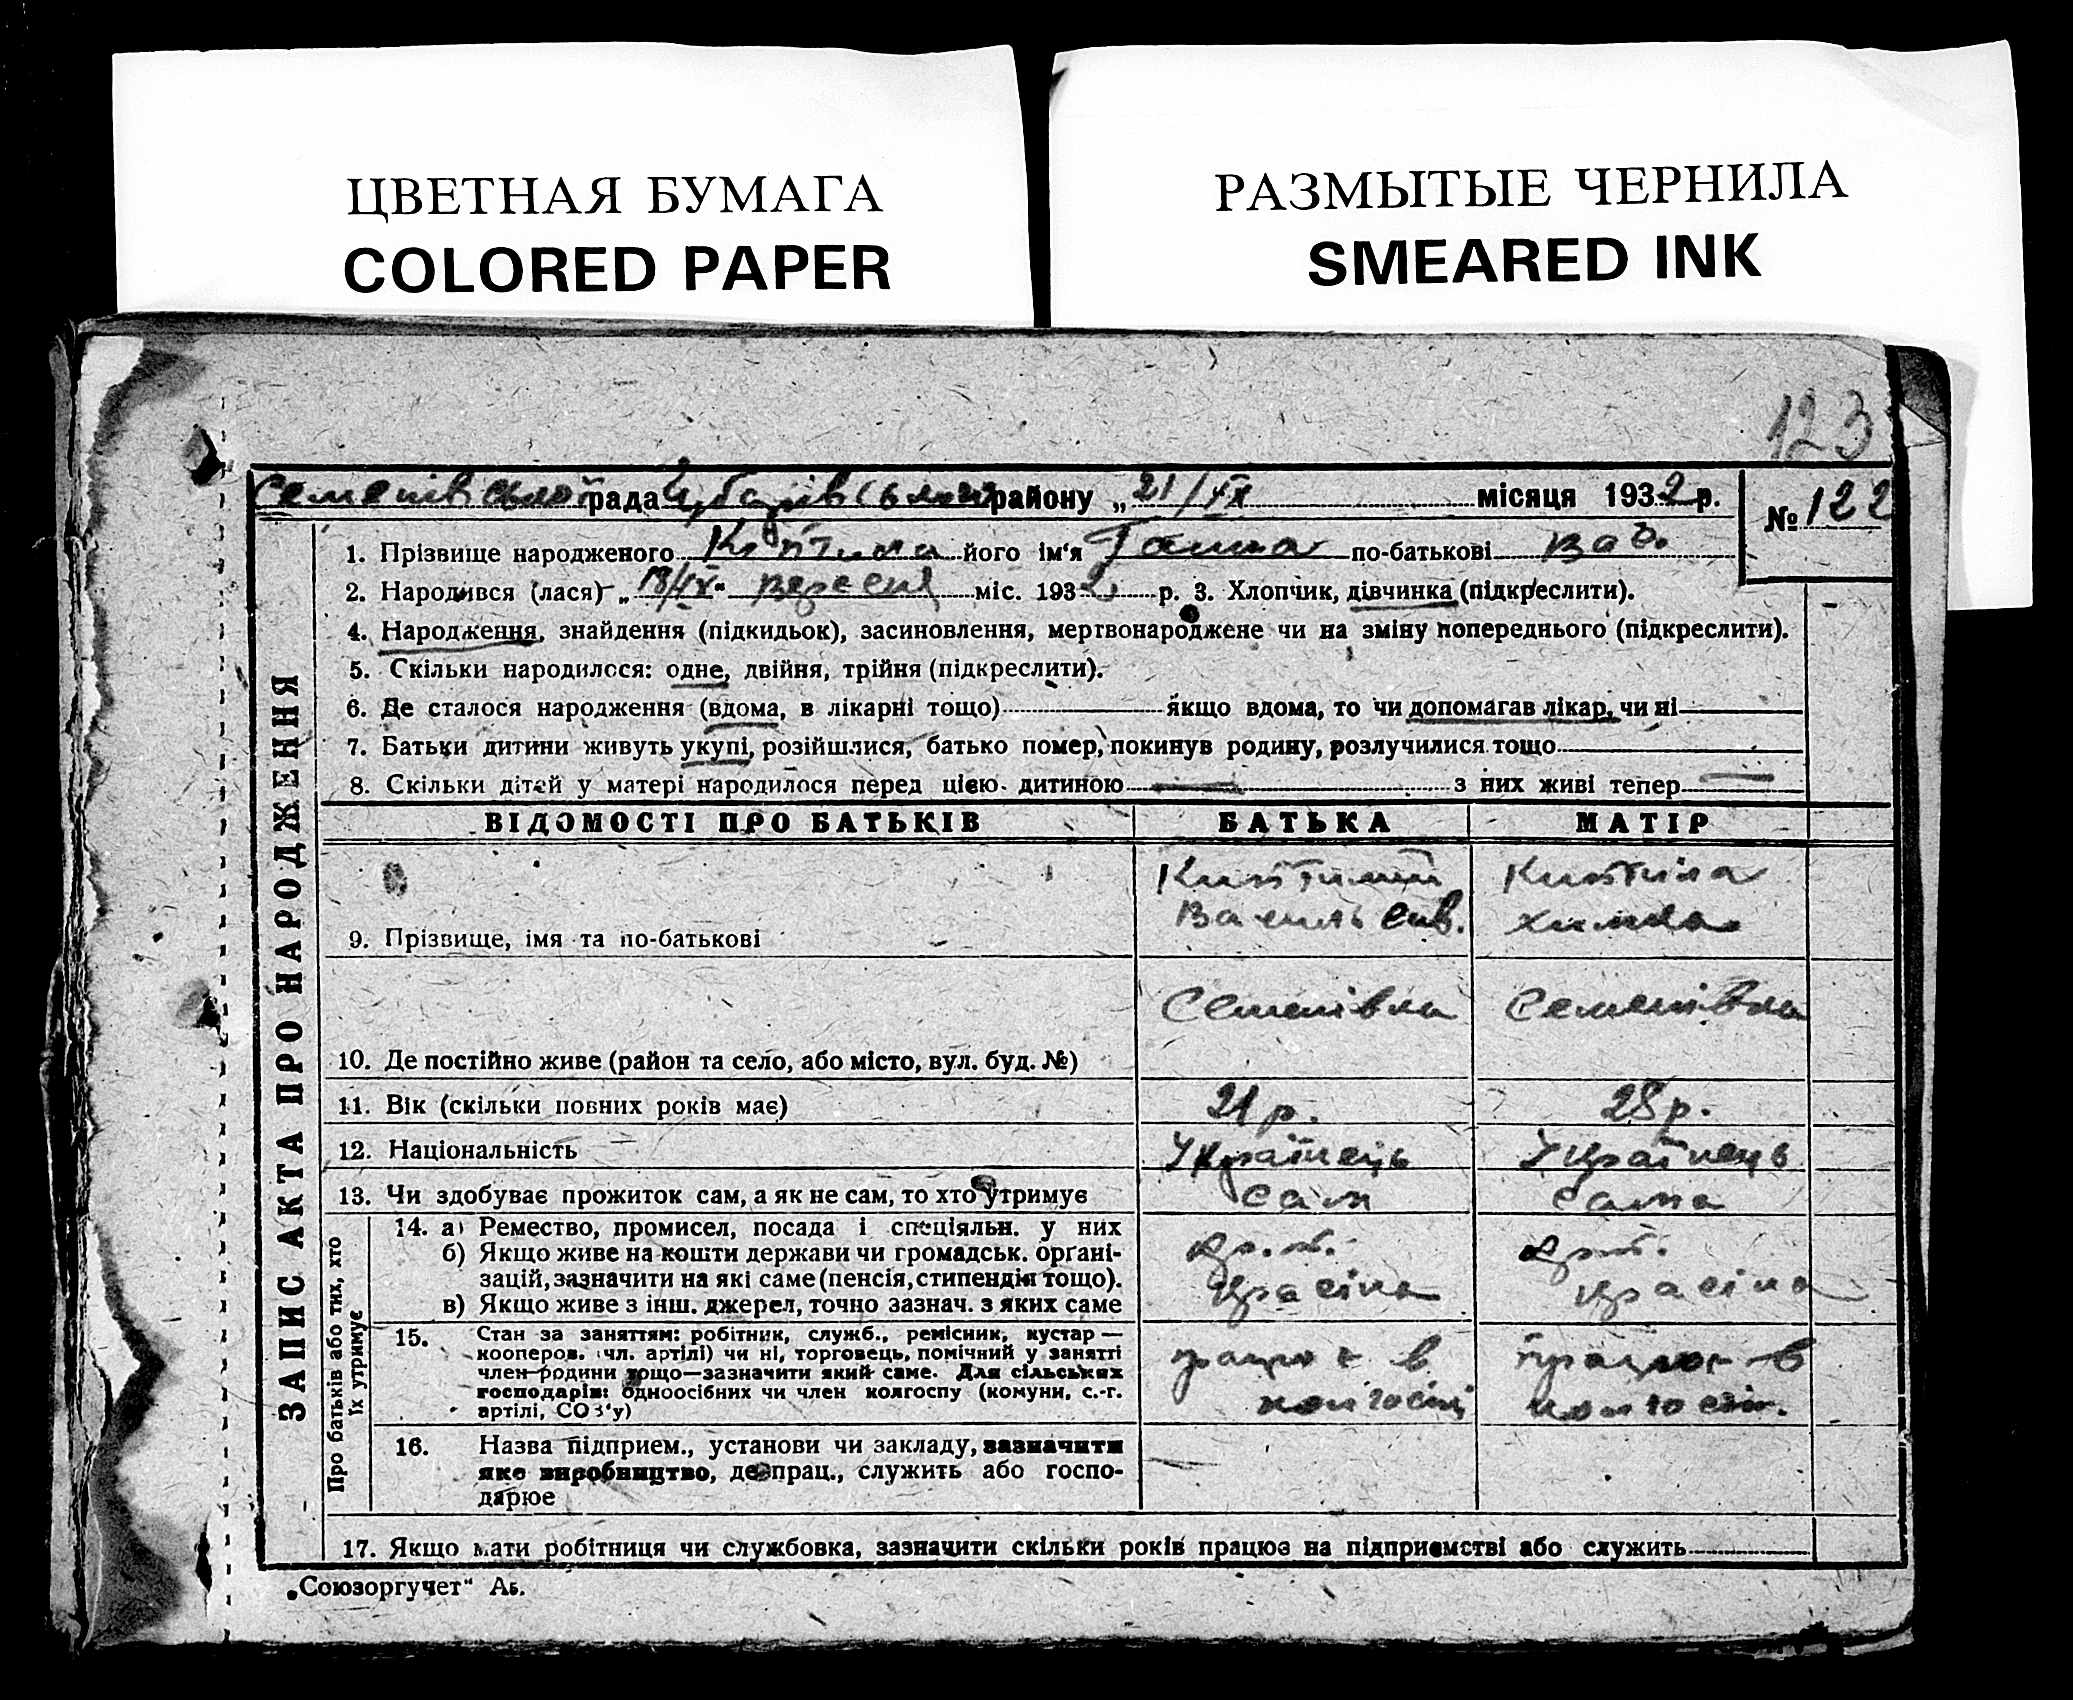 ЦВЕТНАЯ БУМАГА
COLORED PAPER
РАЗМЫТЫЕ ЧЕРНИЛА
SMEARED INK
123
рада району „ 21/IX місяця 1932 р.
№ 122
1. Прізвище народженого його ім'я Ганна по-батькові Вас.
2. Народився (лася) „ 18/IX “ вересня міс. 1932 р. 3. Хлопчик, дівчинка (підкреслити).
4. Народження, знайдення (підкидьок), засиновлення, мертвонароджене чи на зміну попереднього (підкреслити).
5. Скільки народилося: одне, двійня, трійня (підкреслити).
6. Де сталося народження (вдома, в лікарні тощо) якщо вдома, то чи допомагав лікар, чи ні
7. Батьки дитини живуть укупі, розійшлися, батько помер, покинув родину, розлучилися тощо
8. Скільки дітей у матері народилося перед цією дитиною — з них живі тепер —
ЗАПИС АКТА ПРО НАРОДЖЕННЯ
ВІДОМОСТІ ПРО БАТЬКІВ
БАТЬКА
МАТІР
9. Прізвище, імя та по-батькові
10. Де постійно живе (район та село, або місто, вул. буд. №)
Семенівка
Семенівка
11. Вік (скільки повних років має)
21 р.
28 р.
12. Національність
Українець
Українець
13. Чи здобуває прожиток сам, а як не сам, то хто утримує
сам
сама
Про батьків або тих, хто їх утримує
14. а) Ремество, промисел, посада і спеціяльн. у них
б) Якщо живе на кошти держави чи громадськ. органі-
зацій, зазначити на які саме (пенсія, стипендія тощо).
в) Якщо живе з інш. джерел, точно зазнач. з яких саме
15. Стан за заняттям: робітник, служб., ремісник, кустар —
кооперов. (чл. артілі) чи ні, торговець, помічний у занятті
член-родини тощо—зазначити який саме. Для сільських
господарів: одноосібних чи член колгоспу (комуни, с.-г.
артілі, СОЗ'у)
працює в
працює в
16. Назва підприєм., установи чи закладу, зазначити
яке виробництво, де прац., служить або госпо-
дарює
17. Якщо мати робітниця чи службовка, зазначити скільки років працює на підприємстві або служить
„Союзоргучет“ Аь.